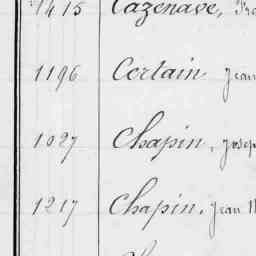 1415 Cazenave,
1196 Certain Jean
1027 Chapin, Josep
1217 Chapin, Jean